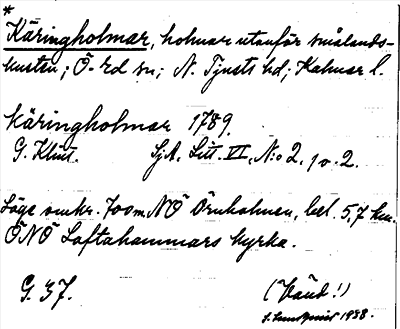 *
Käringholmar, holmar utanför smålands-
kusten; Ö-rd sn; N. Tjusts hd; Kalmar l.
Käringholmar 1789.
G. Klint. SjA, Litt. VI, N:o 2, 1 o. 2.
Läge omkr. 700 m NÖ Örnholmen, bel. 5,7 km.
ÖNÖ Loftahammars kyrka.
G. 37. (Vänd!)
S. Lundquist 1938.